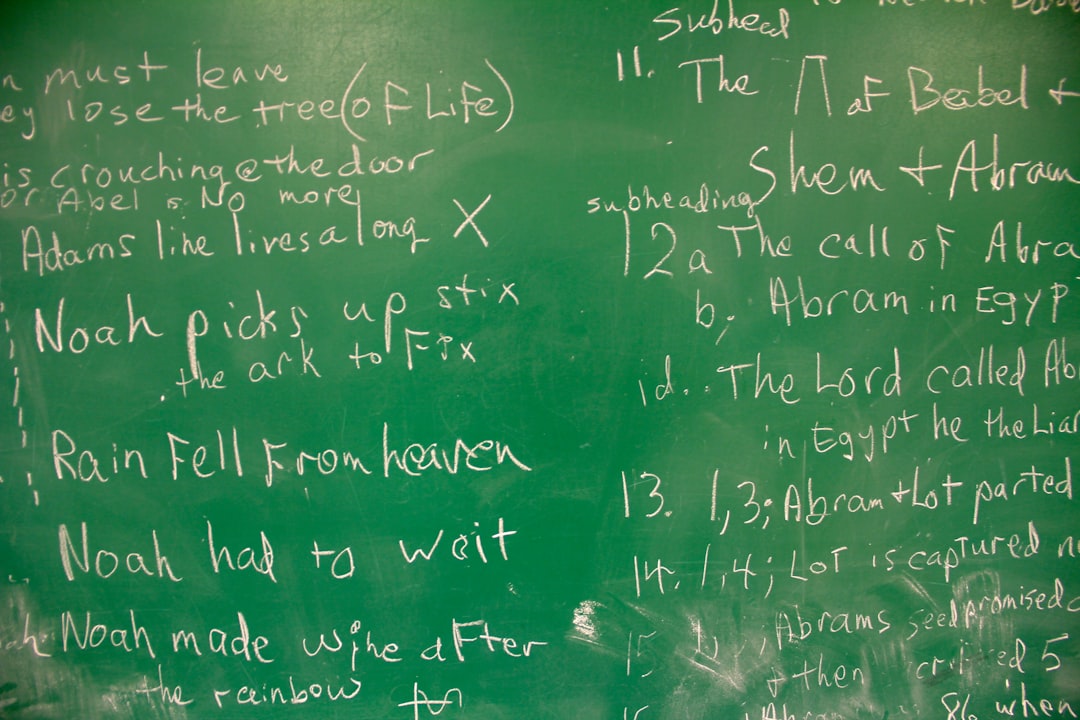 must leave
lose the tree (of Life)
is crouching @ the door
or Abel is No more
Adams line lives along X
Noah picks up stix
the ark to Fix
Rain Fell From heaven
Noah had to wait
Noah made wine after
the rainbow
subhead
11. The Π of Babel +
Shem + Abram
subheading
12a The call of Abra
b. Abram in Egyp
1d.. The Lord called Ab
in Egypt he the Liar
13. 1,3; Abram + Lot parted
14. 1,4; Lot is captured
15 Abrams seed promised
+ then 5
86 when